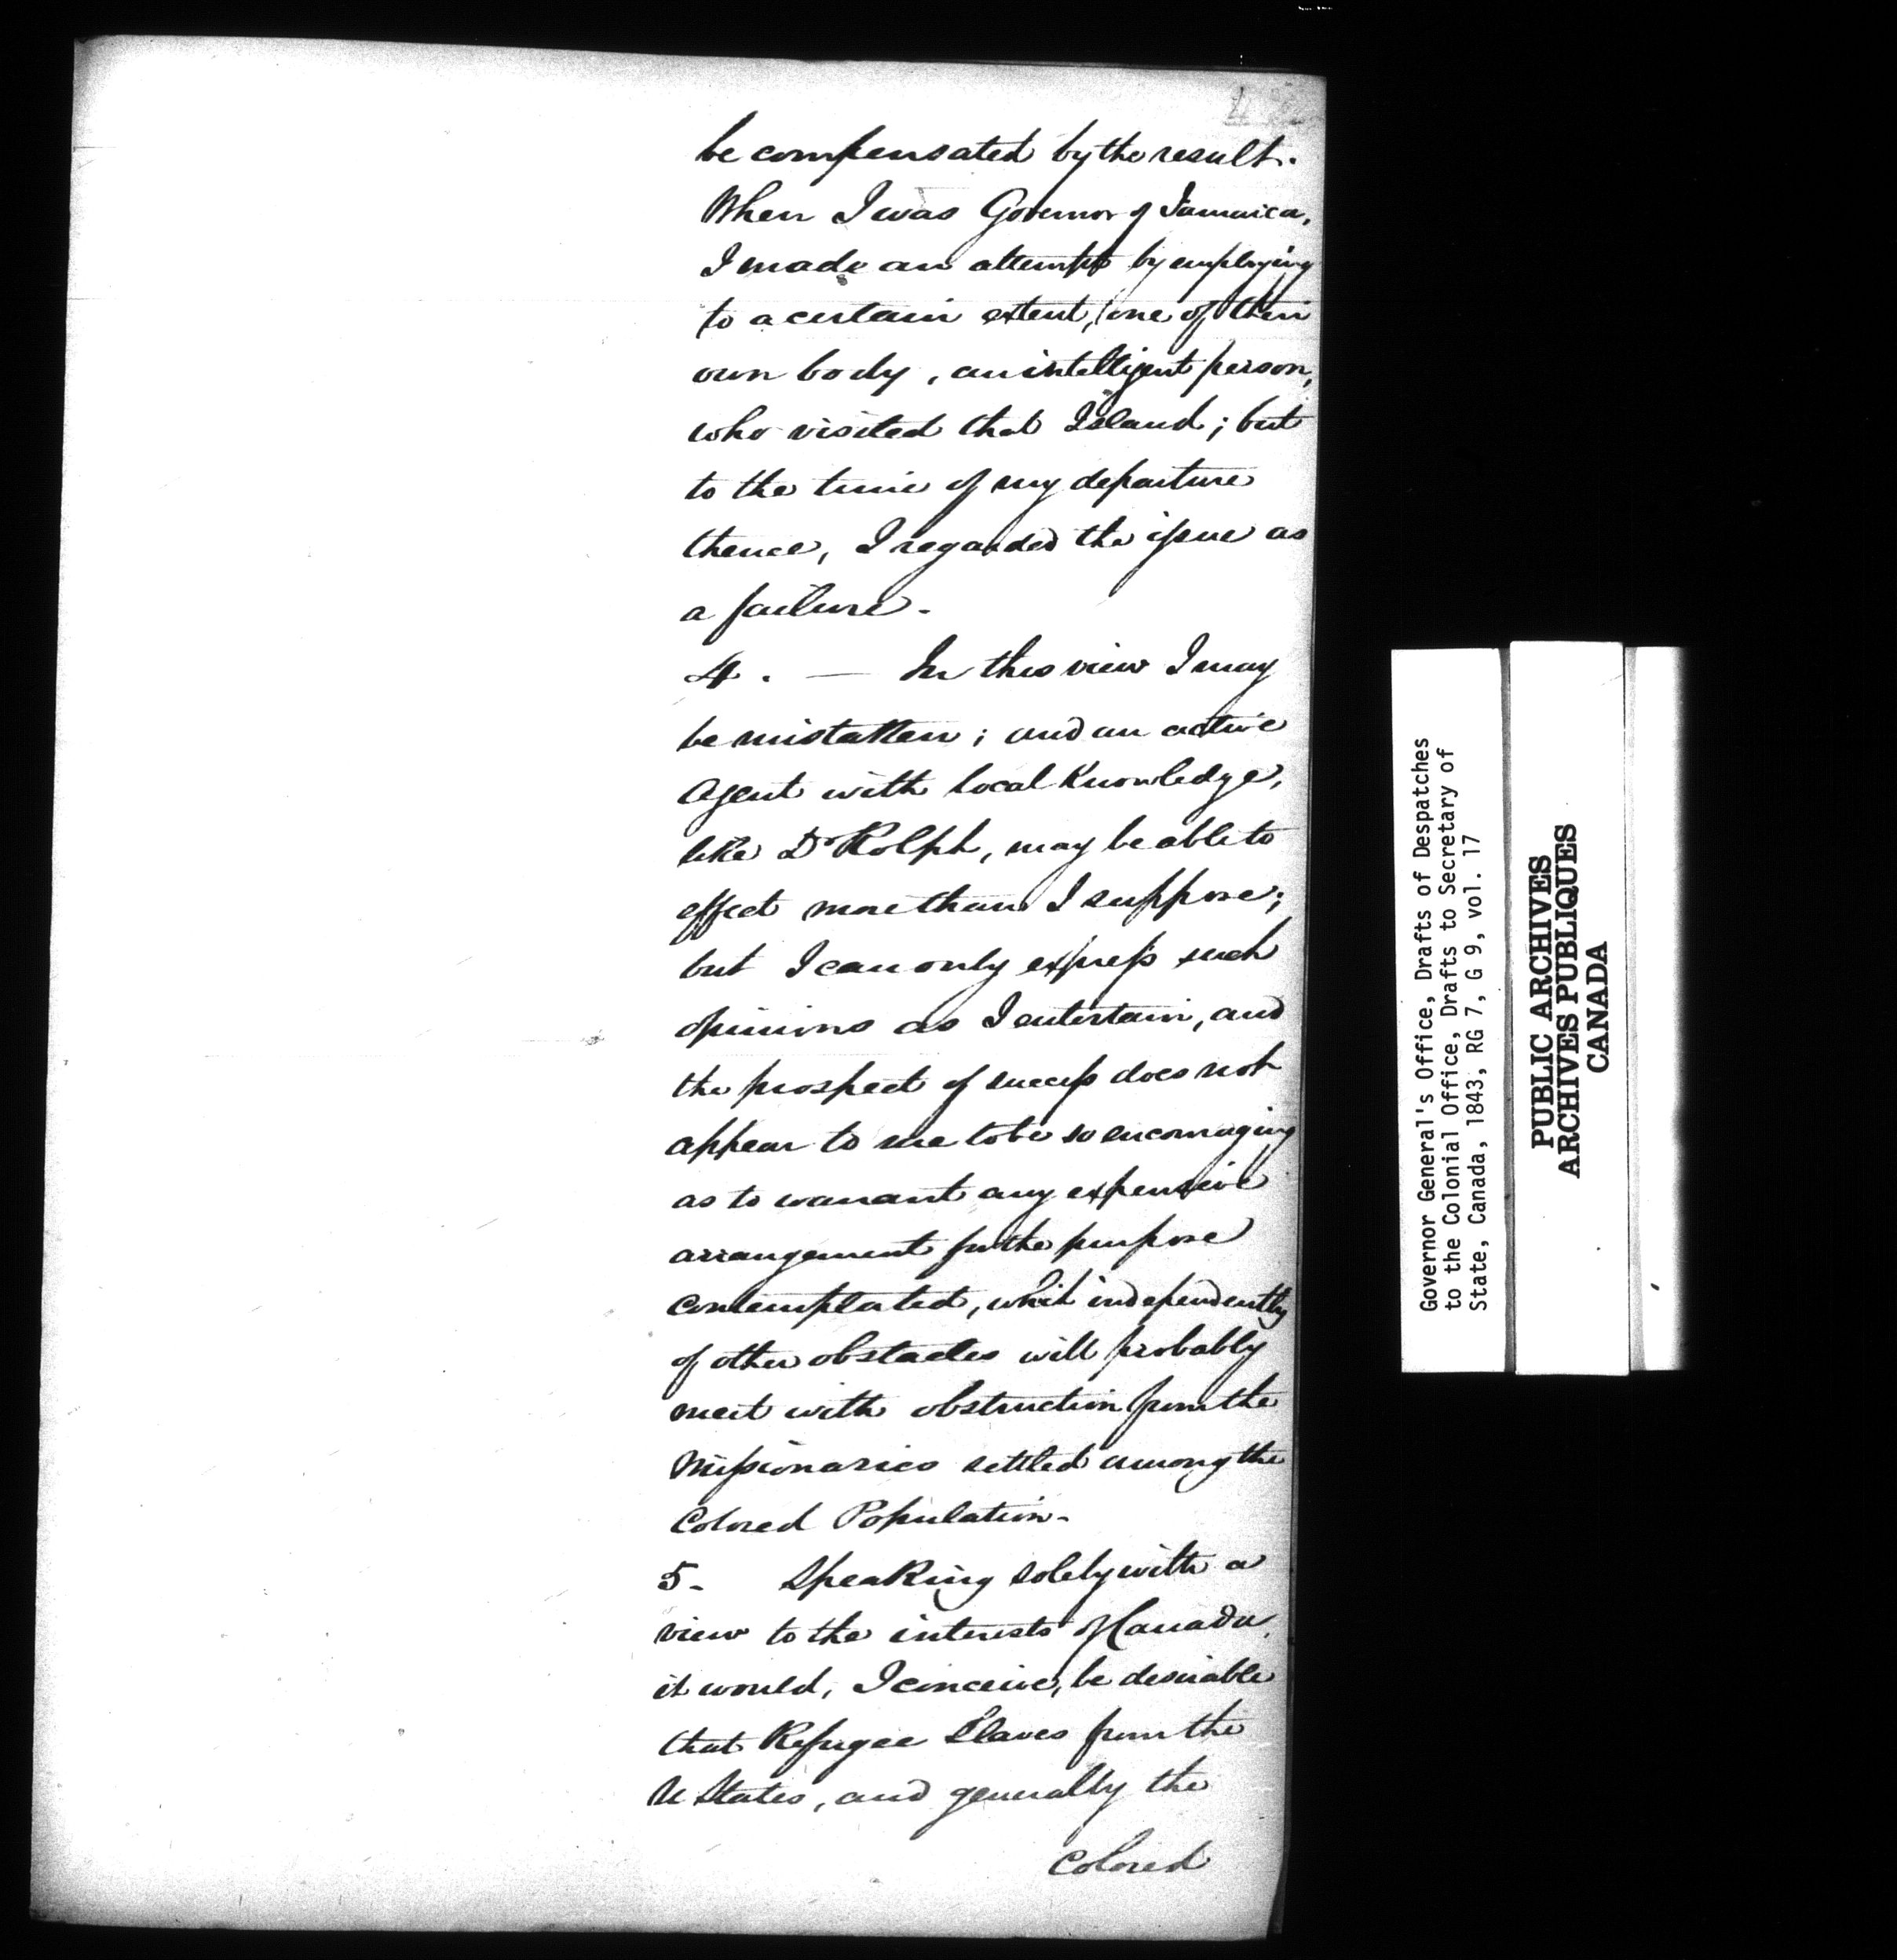 be compensated by the result.
When I was Governor of Jamaica,
I made an attempt by employing
to a certain extent, one of their
own body, an intelligent person,
who visited that Island; but
to the time of my departure
thence, I regarded the issue as
a failure.
4. — In this view I may
be mistaken; and an active
Agent with local Knowledge,
like Dr Rolph, may be able to
effect more than I suppose;
but I can only express such
opinions as I entertain, and
the prospect of success does not
appear to me to be so encouraging
as to warrant any expensive
arrangement for the purpose
contemplated, which independently
of other obstacles will probably
meet with obstruction from the
Missionaries settled among the
Colored Population.
5. Speaking solely with a
view to the interests of Canada,
it would, I conceive, be desirable
that Refugee Slaves from the
U States, and generally the
Colored
Governor General's Office, Drafts of Despatches
to the Colonial Office, Drafts to Secretary of
State, Canada, 1843, RG 7, G 9, vol. 17
PUBLIC ARCHIVES
ARCHIVES PUBLIQUES
CANADA